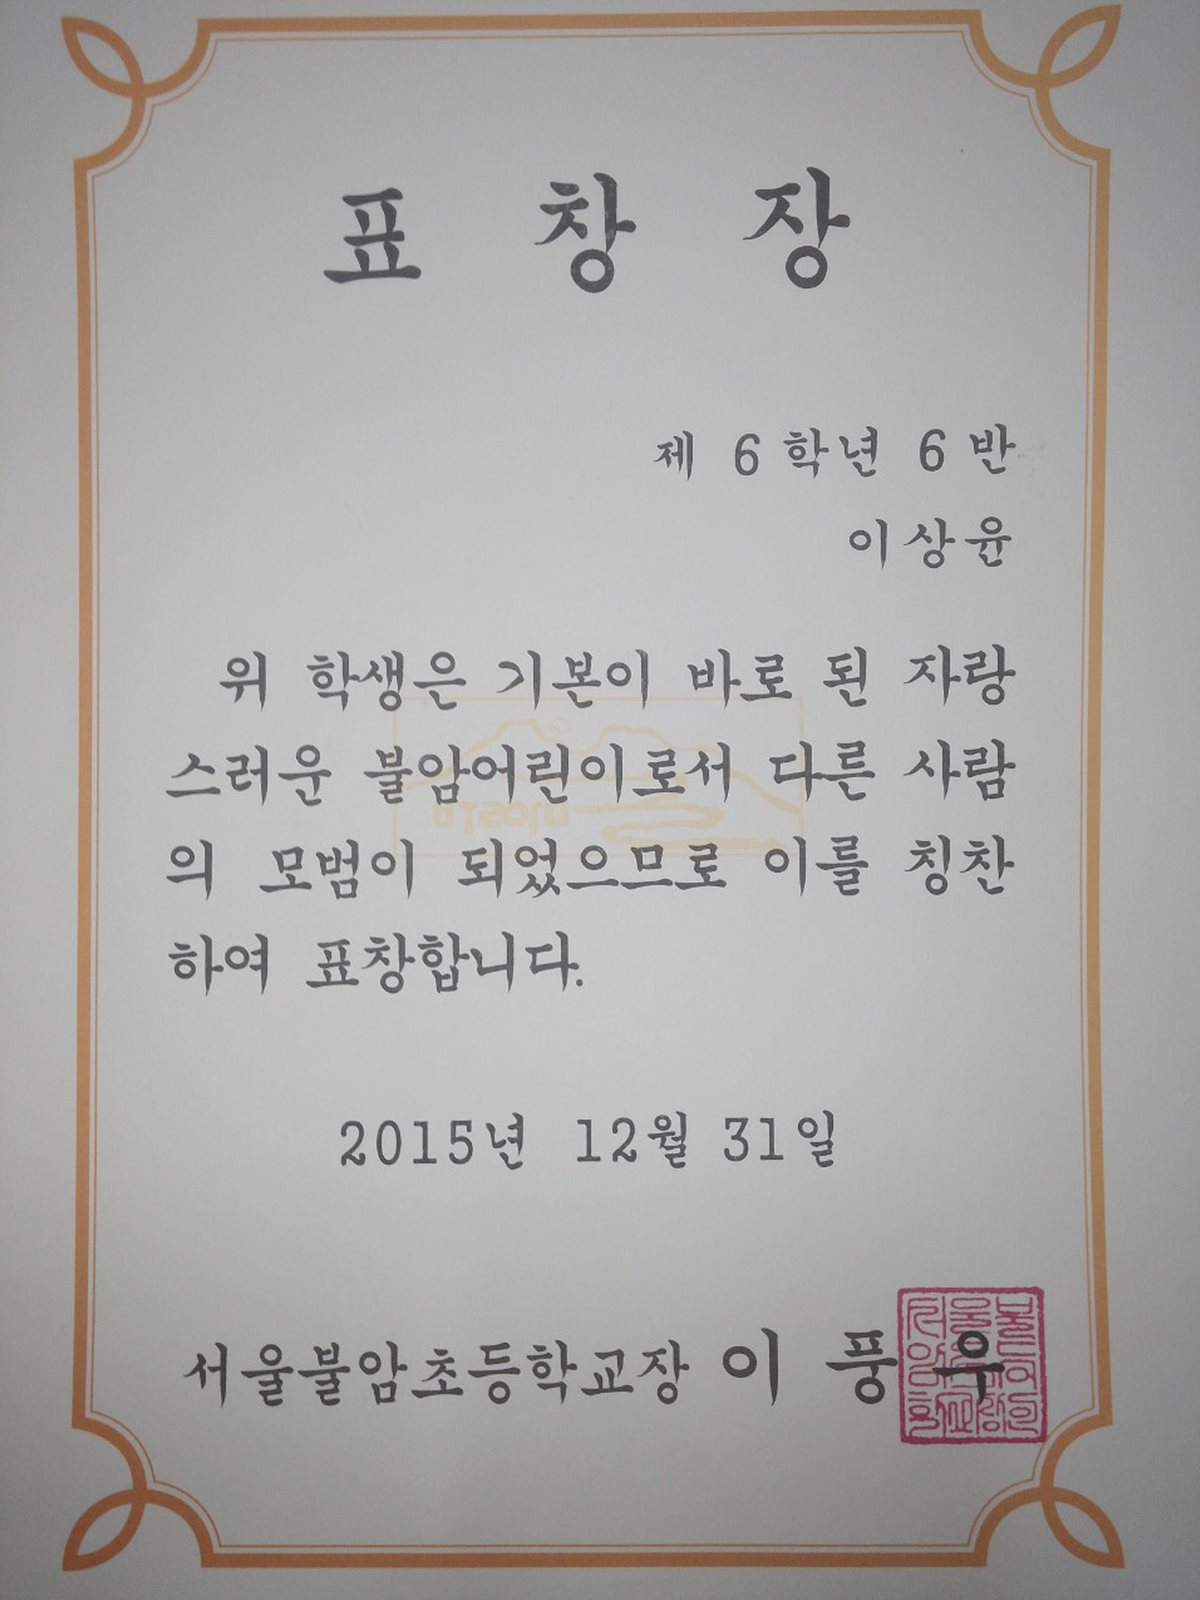 표 창 장
제 6 학년 6 반
이상윤
위 학생은 기본이 바로 된 자랑
스러운 불암어린이로서 다른 사람
의 모범이 되었으므로 이를 칭찬
하여 표창합니다.
2015년 12월 31일
서울불암초등학교장 이 풍 우